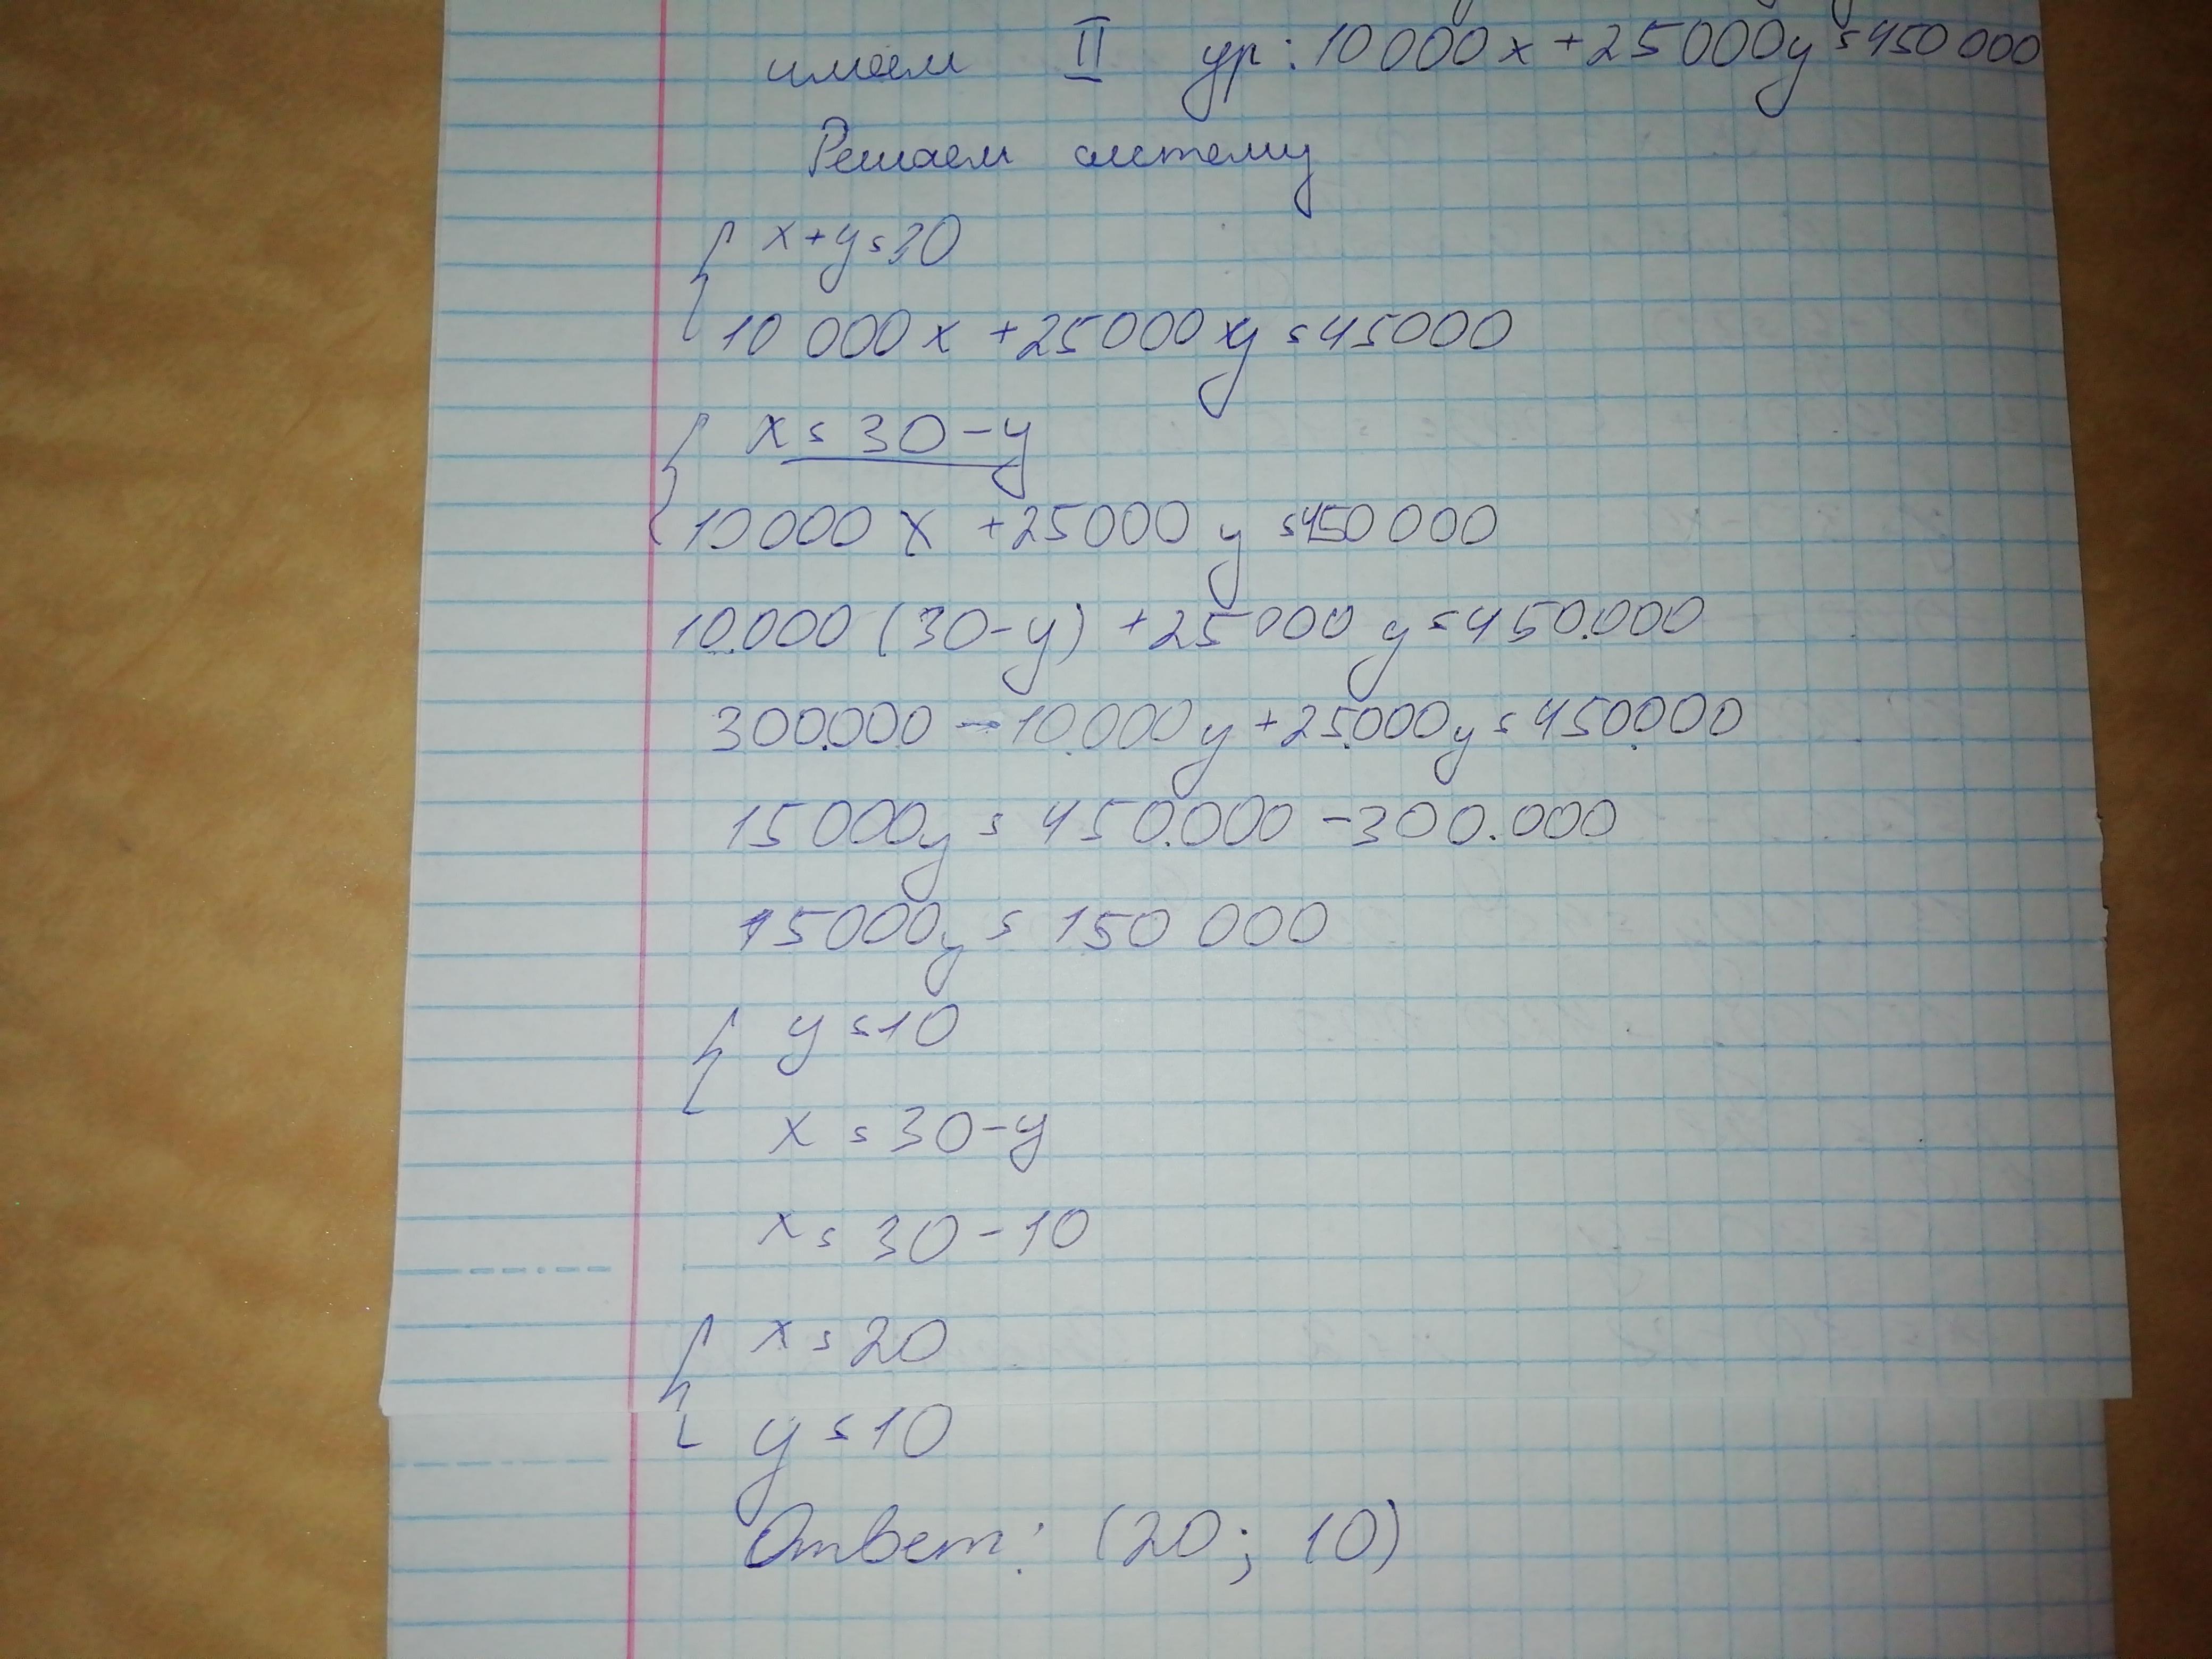 имеем II ур: 10 000 x + 25 000y = 450 000
Решаем систему
x + y = 30
10 000 x + 25000 y = 45000
x = 30 - y
10 000 x + 25000 y = 450 000
10.000 (30 - y) + 25 000 y = 450.000
300.000 - 10.000 y + 25.000y = 450.000
15 000y = 450.000 - 300.000
15000y = 150 000
y = 10
x = 30 - y
x = 30 - 10
x = 20
y = 10
Ответ: (20; 10)